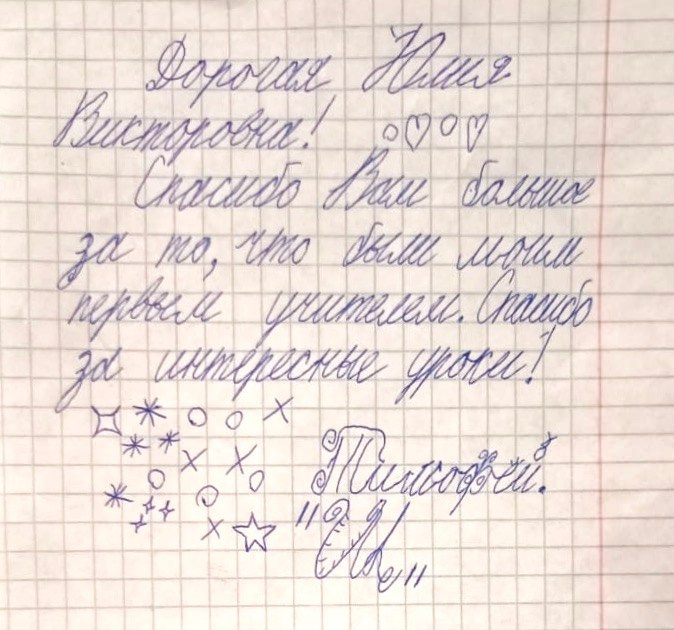 Дорогая Юлия
Викторовна!
Спасибо Вам большое
за то, что были моим
первым учителем. Спасибо
за интересные уроки!
Тимофей.